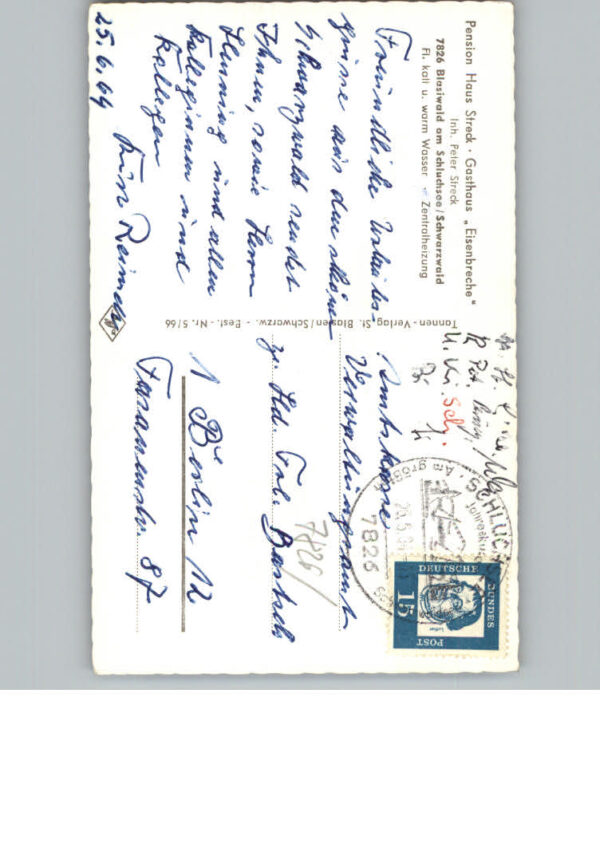 Pension Haus Streck · Gasthaus „Eisenbreche"
Inh. Peter Streck
7826 Blasiwald am Schluchsee/Schwarzwald
Fl. kalt u. warm Wasser - Zentralheizung
Freundliche Urlaubs-
grüsse aus dem schönen
Schwarzwald sendet
Ihnen, sowie Herrn
Henning und allen
Kolleginnen und
Kollegen
25.6.64
Tannen-Verlag, St. Blasien/Schwarzw. - Best.-Nr. 5/66
Amtskasse
Verwaltungsamt
z. Hd. Frl. Bartels
1 Berlin 12
Fasanenstr. 87
7826
SCHLUCH
Am größt
7826
DEUTSCHE
BUNDES
POST
15
Luther